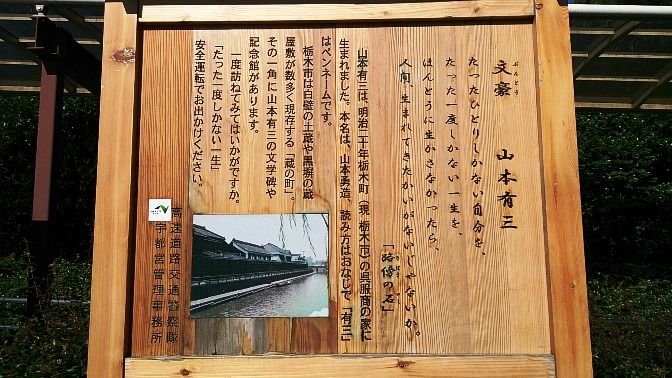 文豪 山本有三
ぶんごう
たったひとりしかない自分を、
たった一度しかない一生を、
ほんとうに生かさなかったら、
人間、生まれてきたかいがないじゃないか。
「路傍の石」
ろぼう いし
山本有三は、明治二十年栃木町（現 栃木市）の呉服商の家に
生まれました。本名は、山本勇造、読み方はおなじで、「有三」
はペンネームです。
栃木市は白壁の土蔵や黒塀の蔵
屋敷が数多く現存する「蔵の町」。
その一角に山本有三の文学碑や
記念館があります。
一度訪ねてみてはいかがですか。
「たった一度しかない一生」
安全運転でお出かけください。
高速道路交通警察隊
宇都宮管理事務所